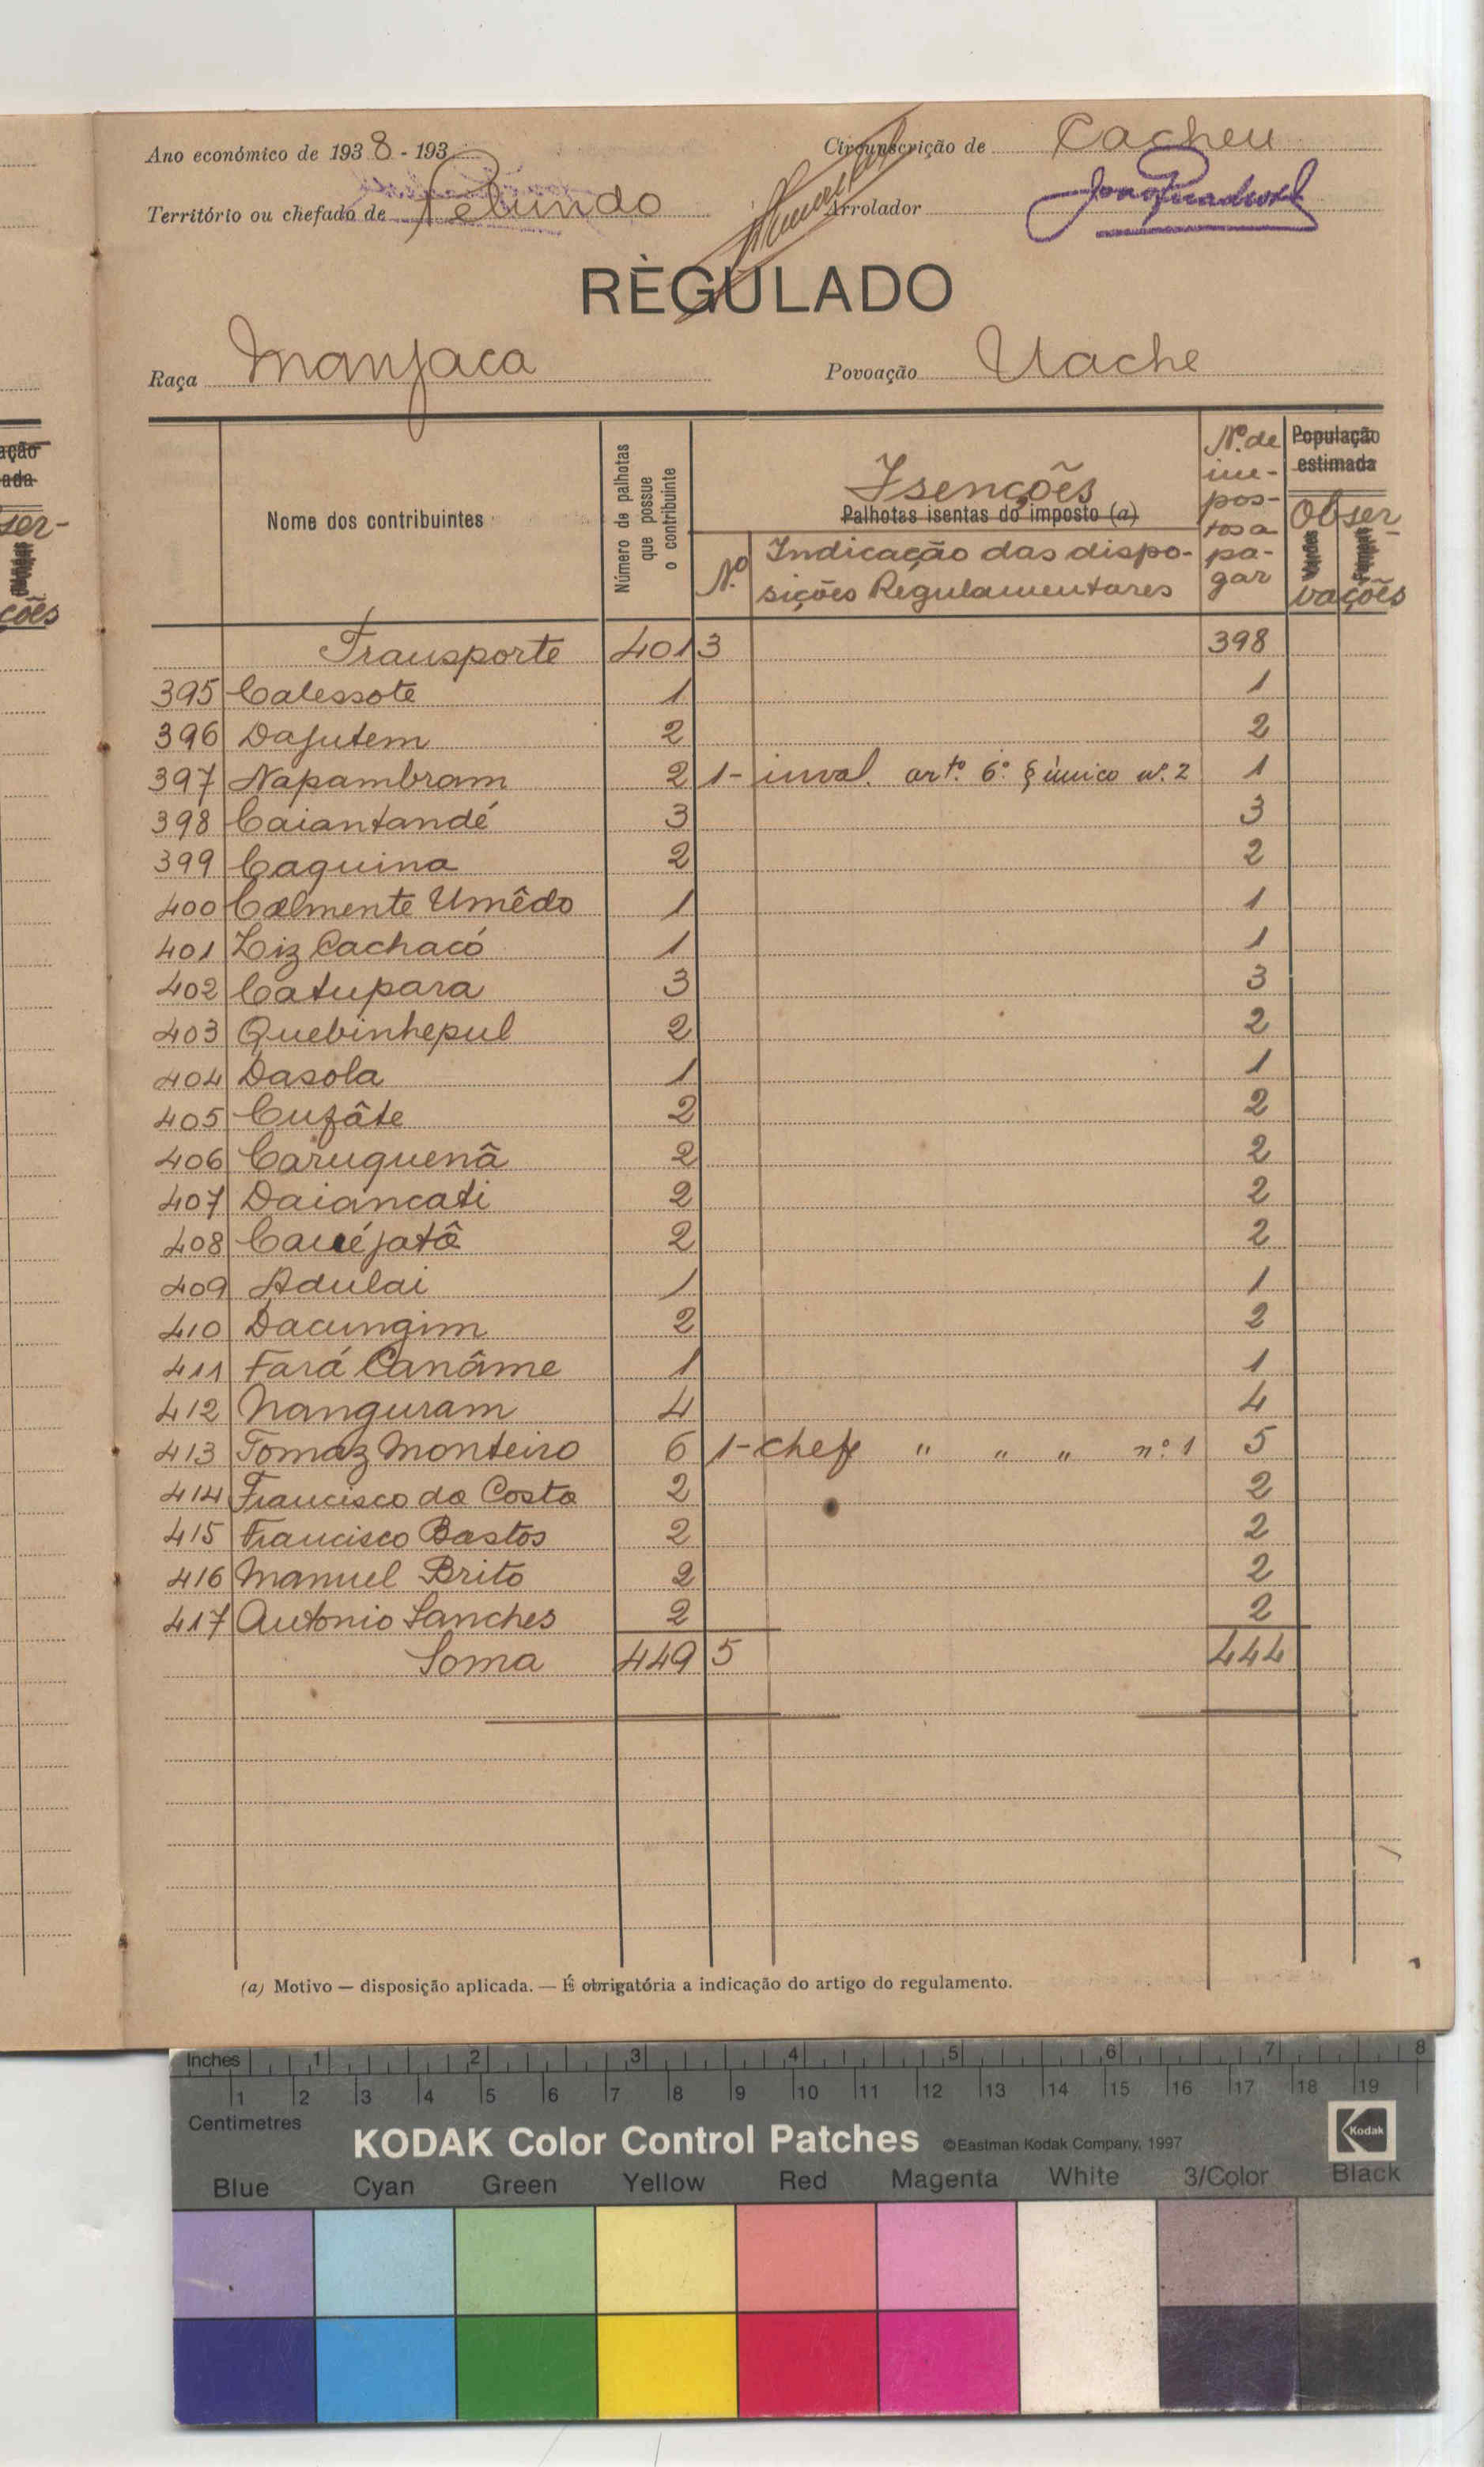 Ano económico de 1938-193
Circunscrição de Cacheu
Território ou chefado de Pelundo
Arrolador
RÈGULADO
Raça Manjaca
Povoação Uache
Nome dos contribuintes
Número de palhotas que possue o contribuinte
Isenções
Palhotas isentas do imposto (a)
N.º
Indicação das dispo-
sições Regulamentares
Nº. de
im-
pos-
tos a
pa-
gar
População
estimada
Obser-
vações
ação
ada
ser-
ções
Transporte 401 3 398
395 Calessote 1 1
396 Dajutem 2 2
397 Napambram 2 1- inval. artº. 6º. § único nº. 2 1
398 Caiantandé 3 3
399 Caquina 2 2
400 Calmente Umêdo 1 1
401 Liz Cachacó 1 1
402 Catupara 3 3
403 Quebinhepul 2 2
404 Dasola 1 1
405 Cufâte 2 2
406 Caruquenã 2 2
407 Daiancati 2 2
408 Cauéjatô 2 2
409 Adulai 1 1
410 Dacungim 2 2
411 Fará Canâme 1 1
412 Nanguram 4 4
413 Tomaz Monteiro 6 1- chefe " " " nº. 1 5
414 Francisco da Costa 2 2
415 Francisco Bastos 2 2
416 Manuel Brito 2 2
417 Antonio Sanches 2 2
Soma 449 5 444
(a) Motivo — disposição aplicada. — É obrigatória a indicação do artigo do regulamento.
Inches 1 2 3 4 5 6 7 8
1 2 3 4 5 6 7 8 9 10 11 12 13 14 15 16 17 18 19
Centimetres
KODAK Color Control Patches ©Eastman Kodak Company, 1997 Kodak
Blue Cyan Green Yellow Red Magenta White 3/Color Black